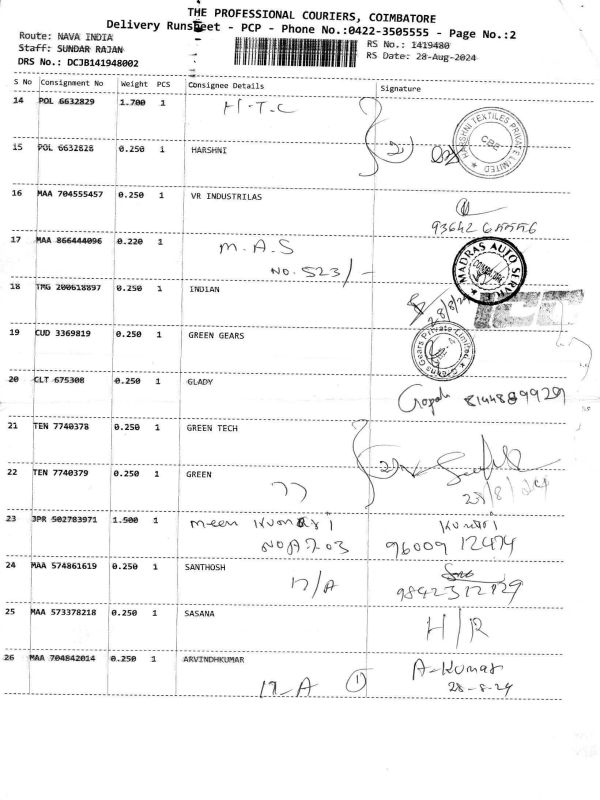 THE PROFESSIONAL COURIERS, COIMBATORE
Delivery Runsheet - PCP - Phone No.:0422-3505555 - Page No.:2
Route: NAVA INDIA
RS No.: 1419480
Staff: SUNDAR RAJAN
RS Date: 28-Aug-2024
DRS No.: DCJB141948002
S No Consignment No Weight PCS Consignee Details Signature
14 POL 6632829 1.700 1 H.T.C
HARSHNI TEXTILES PRIVATE LIMITED CBE
15 POL 6632828 0.250 1 HARSHNI
16 MAA 704555457 0.250 1 VR INDUSTRILAS
17 MAA 866444096 0.220 1 M.A.S
NO. 523/-
MADRAS AUTO SERVI
18 TMG 200618897 0.250 1 INDIAN
28/8/24
19 CUD 3369819 0.250 1 GREEN GEARS
Gears Private Limited
20 CLT 675308 0.250 1 GLADY
Gopal 8144889929
21 TEN 7740378 0.250 1 GREEN TECH
22 TEN 7740379 0.250 1 GREEN
28/8/24
23 JPR 502783971 1.500 1 meen kumari
96009 12474
24 MAA 574861619 0.250 1 SANTHOSH
9842312829
25 MAA 573378218 0.250 1 SASANA
H/R
26 MAA 704842014 0.250 1 ARVINDHKUMAR
A-Kumar
1
28-8-24